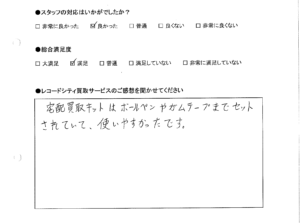 ●スタッフの対応はいかがでしたか？
□ 非常に良かった ☑ 良かった □ 普通 □ 良くない □ 非常に良くない
●総合満足度
□ 大満足 ☑ 満足 □ 普通 □ 満足していない □ 非常に満足していない
●レコードシティ買取サービスのご感想を聞かせてください
宅配買取キットはボールペンやガムテープまでセット
されていて、使いやすかったです。